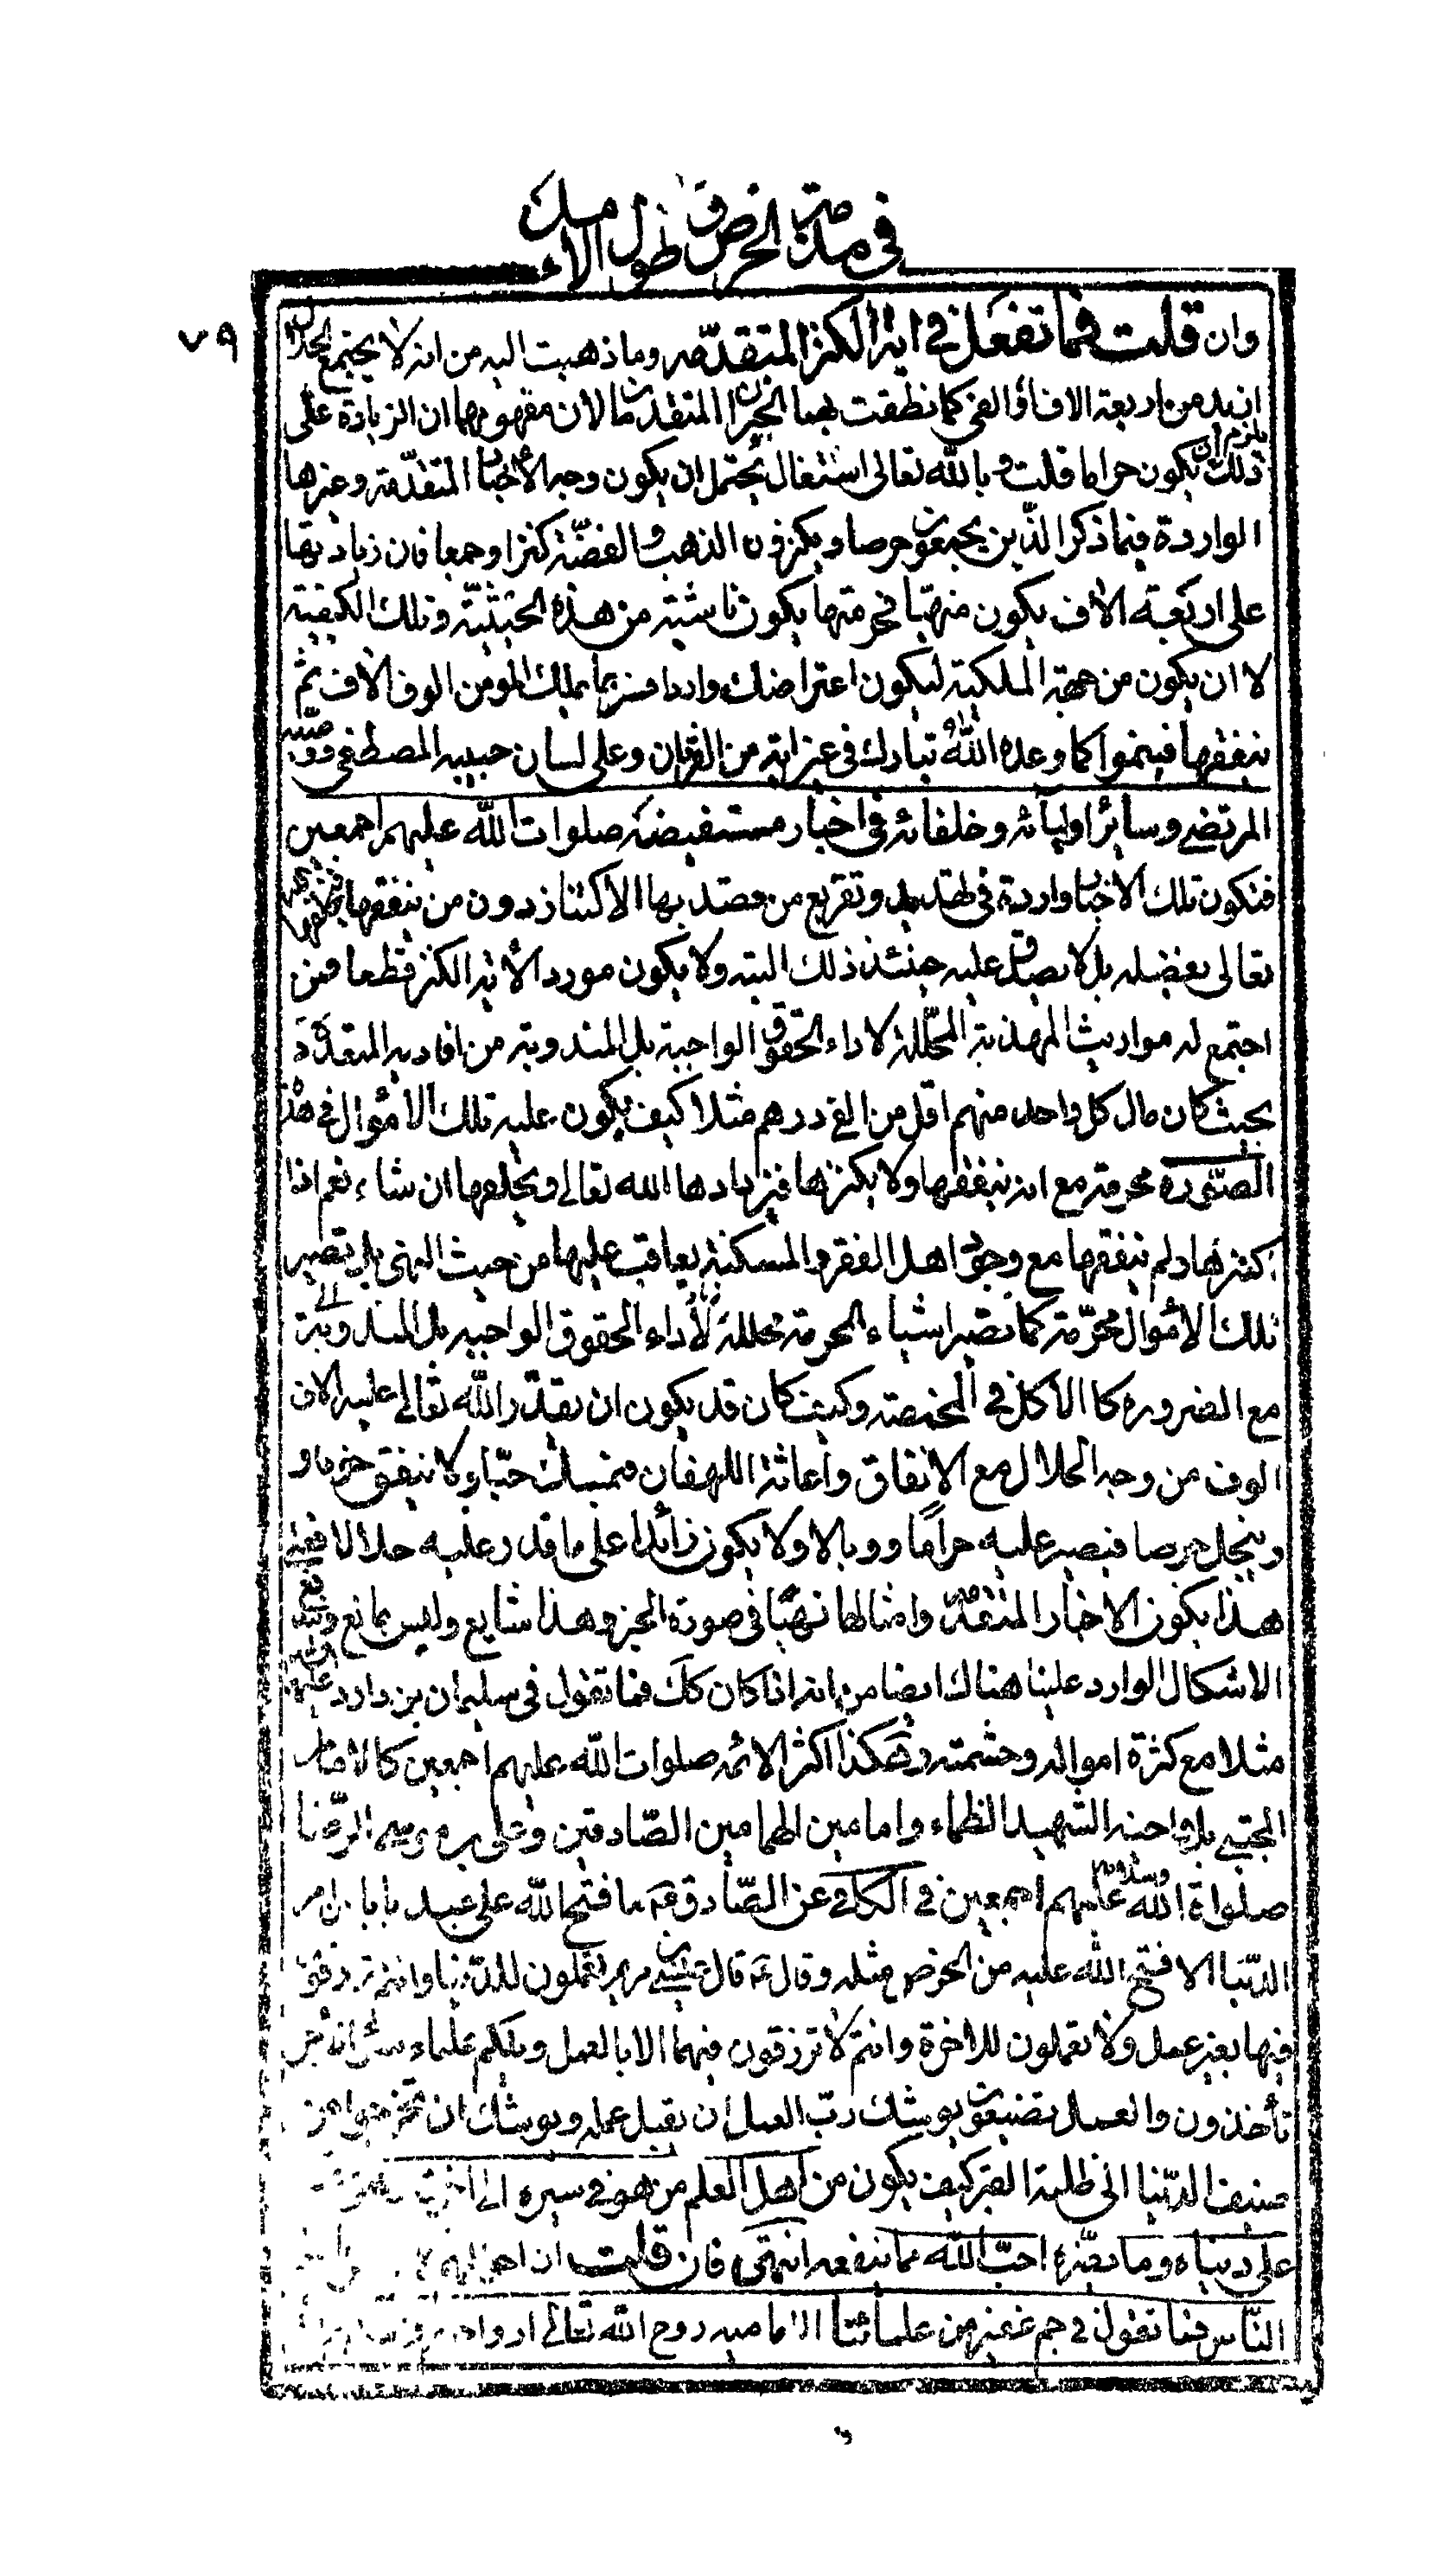 في مذمة الحرص و طول الأمل
٧٩
وان قلت فما تفعل في اية الكنز المتقدّمه وما ذهبت اليه من انه لا يجتمع الحلال
ازيد من اربعة الاف او الفي كما نطقت بهما الخبران المتقدمان لان مفهومهما ان الزيادة على
ذلك يلزم ان يكون حراما قلت و بالله تعالى استغال يحتمل ان يكون وجه الأخبار المتقدّمة وغيرها
الواردة فيما ذكر الذّين يجمعون حرصا ويكنزون الذهب والفضّة كنزا وجمعا فان زيادتها
على اربعة الاف يكون منهيّا فحرمتها يكون ناشئة من هذه الحيثيّة وتلك الكيفية
لا ان يكون من جهة الملكية ليكون اعتراضك واردا فربما يملك المؤمن الوف الاف ثم
ينفقها فينموا كما وعده الله تبارك في غير اية من القران وعلى لسان حبيبه المصطفى ووصيّه
المرتضى وسائر اوليائه وخلفائه في اخبار مستفيضة صلوات الله عليهم اجمعين
فتكون تلك الاخبار واردة في تهديد وتقريع من قصد بها الاكتناز دون من ينفقها
تعالى بفضله بل لا يصدق عليه حينئذ ذلك البته ولا يكون مورد الأية الكنز قطعا فمن
اجتمع له مواريث المهذبة المحلّلة لاداء الحقوق الواجبة بل المندوبة من اقاربه المتعدّدة
بحيث كان مال كل واحد منهم اقل من الف درهم مثلا كيف يكون عليه تلك الأموال في هذا
الصّورة محرمة مع انه ينفقها ولا يكنزها فيزيادها الله تعالى ويخلفها ان شاء نعم اذا
كنزها ولم ينفقها مع وجود اهل الفقر والمسكنة يعاقب عليها من حيث النهى بل تصير
تلك الأموال محرّمة كما تصير اشياء المحرمة محللة لأداء الحقوق الواجبه بل المندوبة
مع الضرورة كا الأكل في المخمصة وكيف كان قد يكون ان يقدّر الله تعالى عليه الاف
الوف من وجه الحلال مع الانفاق واغاثة اللهفان فيمسك حبّا ولا ينفق جزما و
ويبخل حرصا فيصير عليه حراما ووبالا ولا يكون زائدا على ما قدر عليه حلالا فعلى
هذا يكون الاخبار المتقدّمة وامثالها نهيّا في صورة الخبر وهذا شايع وليس بمانع ويندفع
الاشكال الوارد علينا هناك ايضا من انه اذا كان كك فما تقول في سليمان بن داود عليهما
مثلا مع كثرة امواله وحشمته وهكذا اكثر الائمه صلوات الله عليهم اجمعين كالامام
المجتبى بل واخيه الشهيد الظماء وامامين الهمامين الصّادقين وعلى بن موسى الرّضا
صلواة الله وسلامه عليهم اجمعين في الكافي عن الصّادق ع ما فتح الله على عبد بابا من امر
الدّنيا الا فتح الله عليه من الحرص مثله وقال ع قال عيسى بن مريم تعملون للدّنيا وانتم ترزقون
فيها بغير عمل ولا تعملون للاخرة وانتم لا ترزقون فيها الا بالعمل ويلكم علماء سوء الاجر
تأخذون والعمل تضيعون يوشك ربّ العمل ان يقبل عمله ويوشك ان تخرجوا من
ضيق الدّنيا الى ظلمة القبر كيف يكون من اهل العلم من هو في سيره الى اخرته
على دنياه وما يضرّه احبّ الله مما ينفعه انتهى فان قلت
النّاس فما تقول في جم غفير من علمائنا الاماميه روح الله تعالى ارواحهم